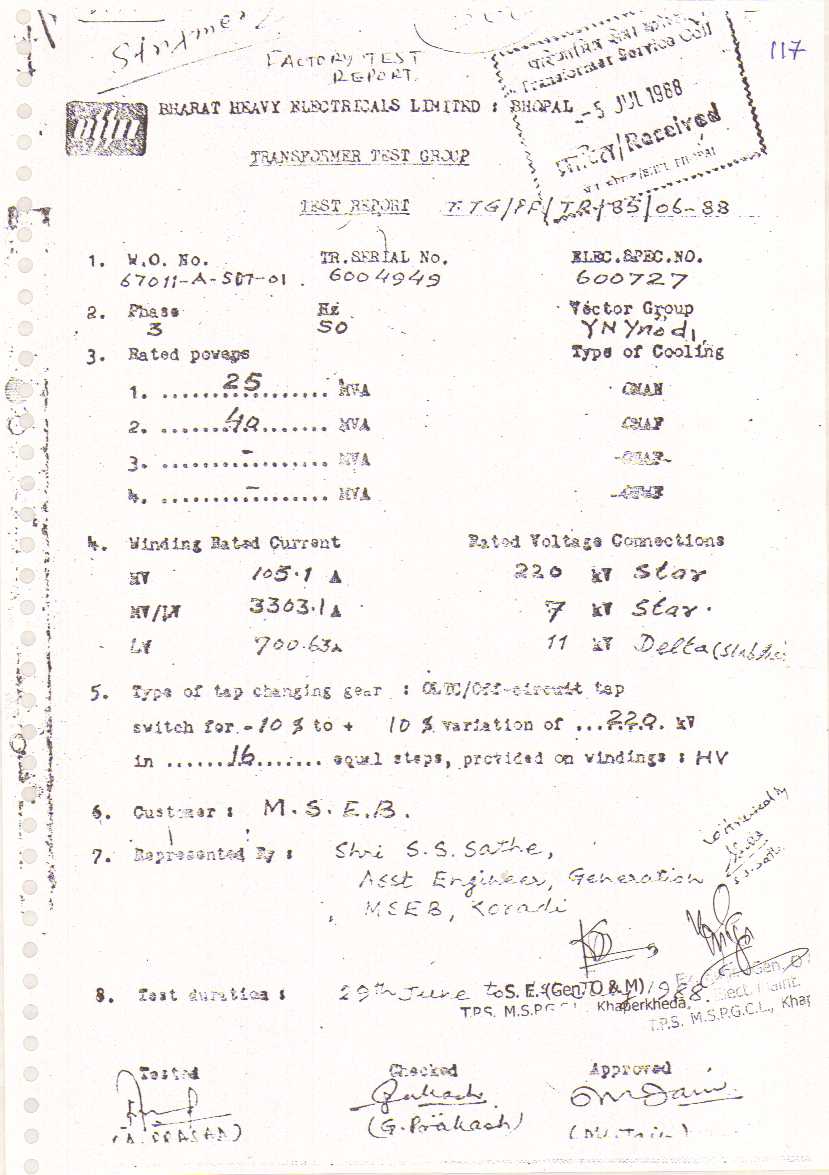 FACTORY TEST
REPORT.
117
Transformer Service Cell
-5 JUL 1988
/Received
BHARAT HEAVY ELECTRICALS LIMITED : BHOPAL
TRANSFORMER TEST GROUP
TEST REPORT TTG/PF/TR/85/06-88
1. W.O. No. TR.SERIAL No. ELEC.SPEC.NO.
67011-A-507-01 6004949 600727
2. Phase Hz Vector Group
3 50 YN Ynod1
3. Rated powers Type of Cooling
1. ........25........ MVA ONAN
2. ........40........ MVA ONAF
3. ........-........ MVA
4. ........-........ MVA
4. Winding Rated Current Rated Voltage Connections
HV 105.1 A 220 kV Star
MV/LV 3303.1 A 7 kV Star.
LV 700.63 A 11 kV Delta
5. Type of tap changing gear : OLTC/Off-circuit tap
switch for -10 % to + 10 % variation of ...220. kV
in .......16....... equal steps, provided on windings : HV
6. Customer : M.S.E.B.
7. Represented By : Shri S.S. Sathe,
Asst Engineer, Generation
MSEB, Koradi
Witnessed by
8. Test duration : 29th June to 1988.
S. E. (Gen. O & M)
T.P.S. M.S.P.G.C.L., Khaperkheda,
T.P.S. M.S.P.G.C.L., Khap
Tested Checked Approved
(A. PRASAD) (G. Prakash)